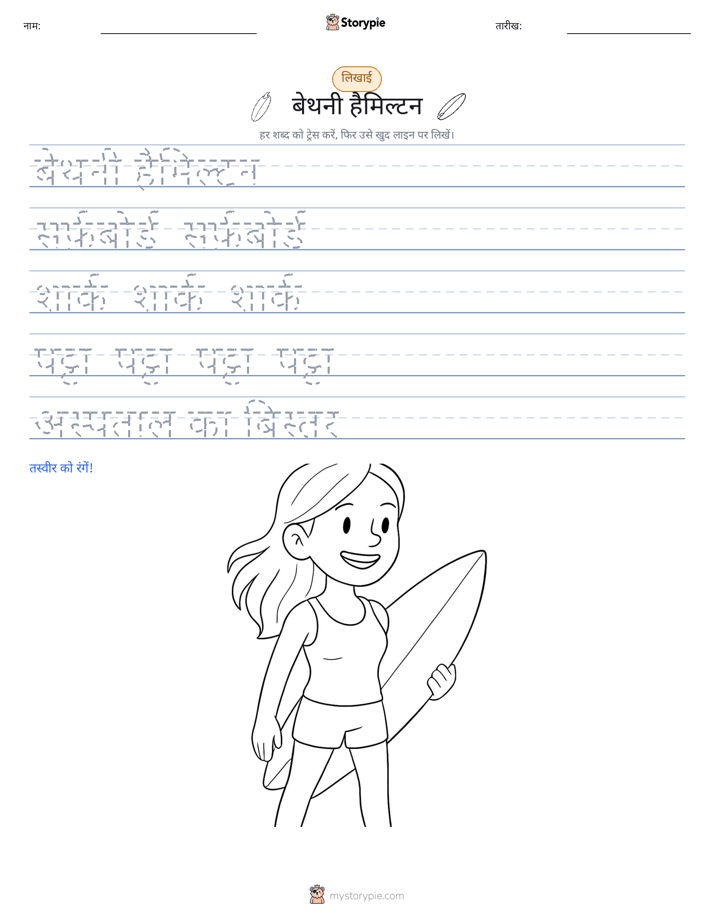 नाम:
Storypie
तारीख:
लिखाई
बेथनी हैमिल्टन
हर शब्द को ट्रेस करें, फिर उसे खुद लाइन पर लिखें।
बेथनी हैमिल्टन
सर्फ़बोर्ड सर्फ़बोर्ड
शार्क शार्क शार्क
पट्टा पट्टा पट्टा पट्टा
अस्पताल का बिस्तर
तस्वीर को रंगें!
mystorypie.com